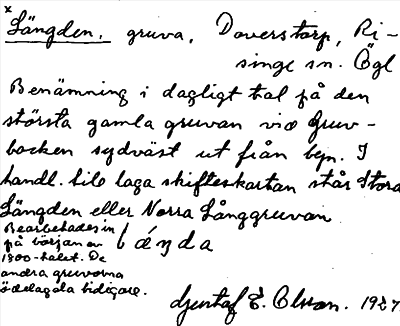 x
Längden, gruva, Doverstorp, Ri-
singe sn. Ögl
Benämning i dagligt tal på den
största gamla gruvan vid Gruv-
backen sydväst ut från byn. I
handl. till laga skifteskartan står Stora
Längden eller Norra Långgruvan
Bearbetades in
på början av
1800-talet. De
andra gruvorna
ödelagda tidigare.
Gustaf E. Olsson. 1927.